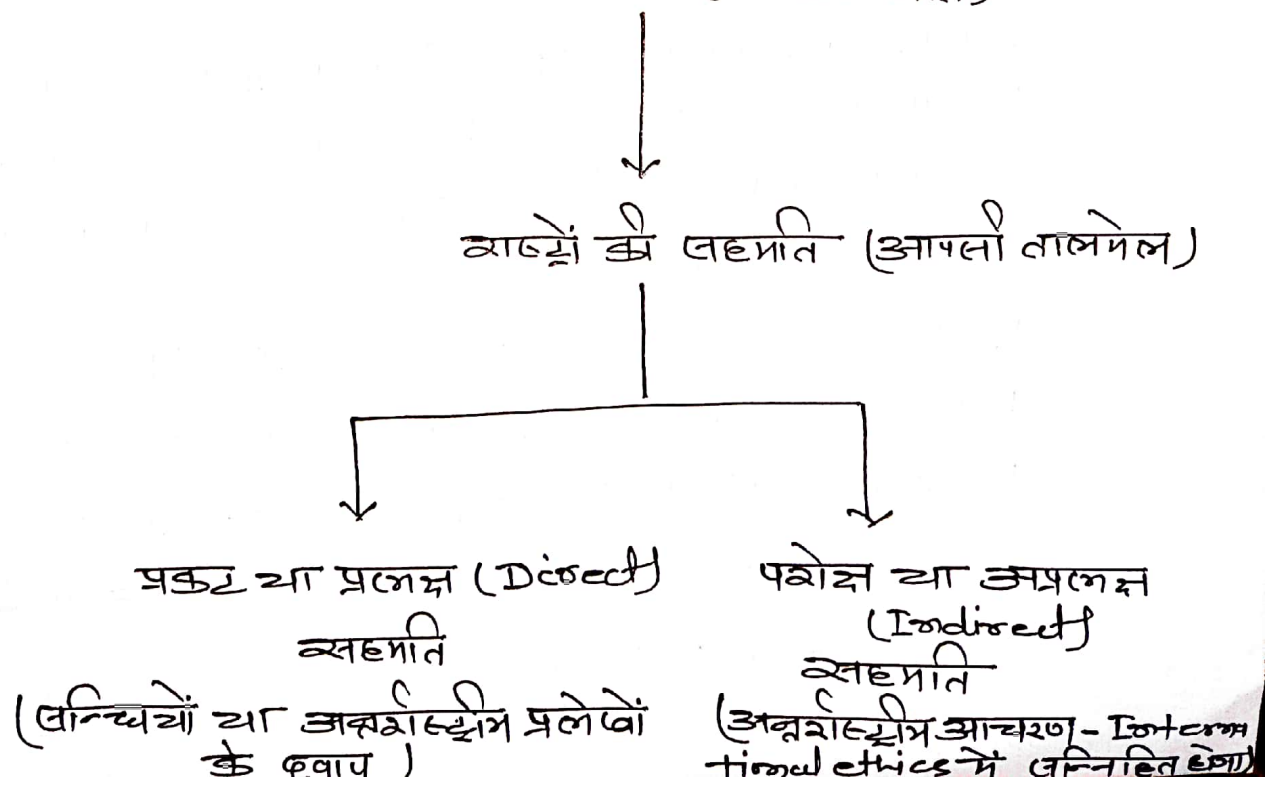 राष्ट्रों की सहमति (आपसी तालमेल)
प्रकट या प्रत्यक्ष (Direct)
सहमति
(सन्धियों या अन्तर्राष्ट्रीय प्रलेखों
के द्वारा)
परोक्ष या अप्रत्यक्ष
(Indirect)
सहमति
(अन्तर्राष्ट्रीय आचरण - Interna
tional ethics में सन्निहित होगा)